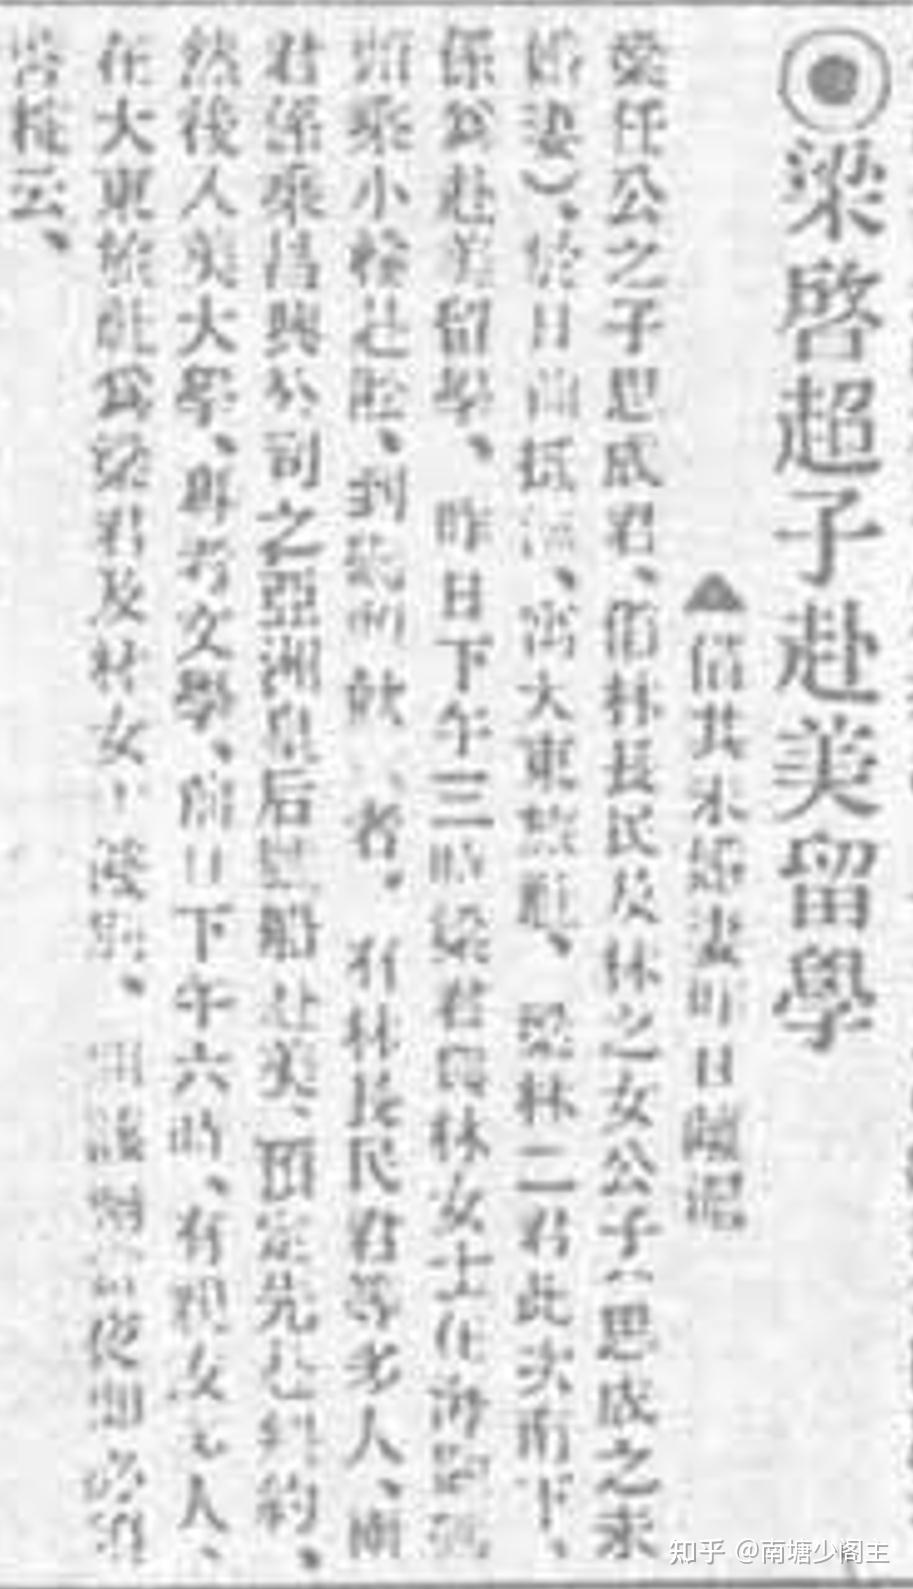 梁啓超子赴美留學
▲偕其未婚妻昨日離滬
梁任公之子思成君、偕林長民及林之女公子(思成之未
婚妻)、於日前抵滬、寓大東旅館、梁林二君此次南下、
係為赴美留學、昨日下午三時梁君與林女士在海關碼
頭乘小輪赴淞、到碼頭 者、有林長民君等多人、
君係乘昌興公司之亞洲皇后號船赴美、預定先赴紐約、
然後入美大學、再考文學、前日下午六時、有親友 人、
在大東旅社為梁君及林女士餞別、
云、
知乎 @南塘少阁主